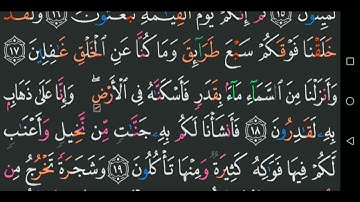 لَمَيِّتُونَ ١٥ ثُمَّ إِنَّكُمْ يَوْمَ الْقِيَامَةِ تُبْعَثُونَ ١٦ وَلَقَدْ
خَلَقْنَا فَوْقَكُمْ سَبْعَ طَرَآئِقَ وَمَا كُنَّا عَنِ الْخَلْقِ غَافِلِينَ ١٧
وَأَنزَلْنَا مِنَ السَّمَآءِ مَآءً بِقَدَرٍ فَأَسْكَنَّاهُ فِي الْأَرْضِ ۖ وَإِنَّا عَلَىٰ ذَهَابٍ
بِهِ لَقَادِرُونَ ١٨ فَأَنشَأْنَا لَكُم بِهِ جَنَّاتٍ مِّن نَّخِيلٍ وَأَعْنَابٍ
لَّكُمْ فِيهَا فَوَاكِهُ كَثِيرَةٌ وَمِنْهَا تَأْكُلُونَ ١٩ وَشَجَرَةً تَخْرُجُ مِن